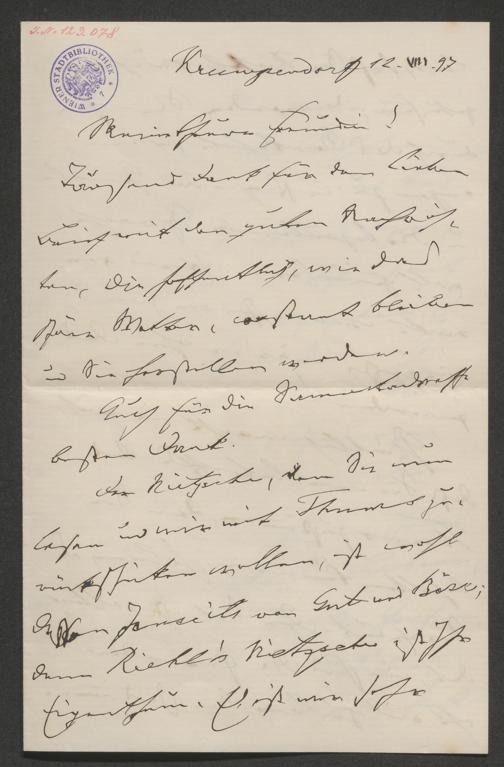 J.N. 129.078
WIENER STADTBIBLIOTHEK
Krumpendorf 12. VIII 97
Meine theure Freundin!
Tausend Dank für den lieben
Brief mit den guten Nachrich-
ten, die hoffentlich, wie das
schöne Wetter, constant bleiben
u Sie herstellen werden.
Auch für die
besten Dank.
Der Nietzsche, den Sie nun
lesen und mir mit Thurms zu-
rückschicken wollen, ist wohl
dessen Jenseits von Gut und Böse;
denn Riehl's Nietzsche ist Ihr
Eigenthum. Es ist mir sehr